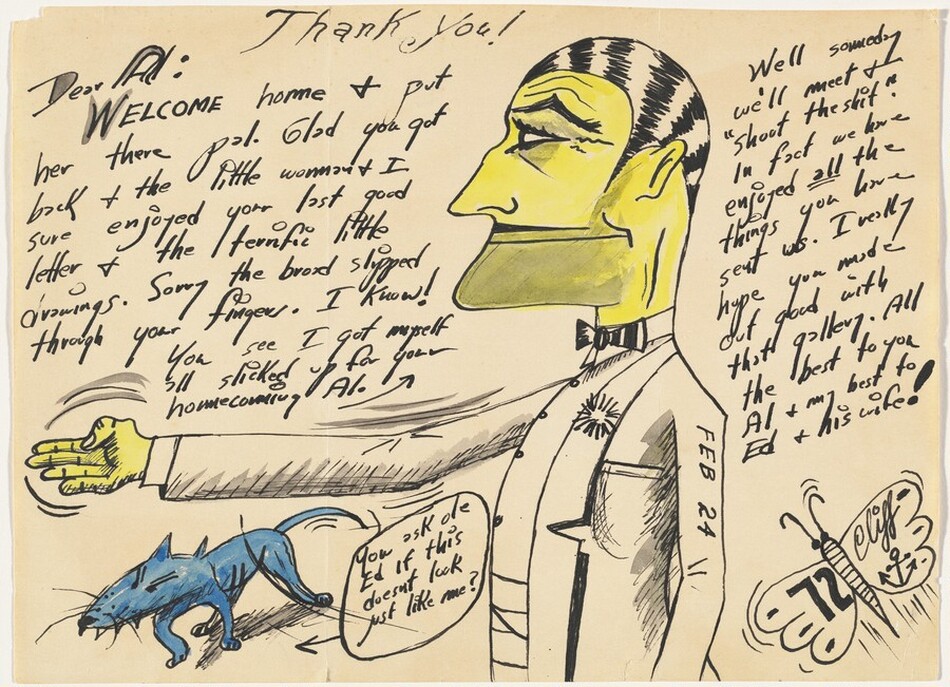 Thank you!
Dear Al:
WELCOME home + put
her there pal. Glad you got
back + the little woman + I
sure enjoyed your last good
letter + the terrific little
drawings. Sorry the broad slipped
through your fingers. I know!
You see I got myself
all slicked up for your
homecoming Al.
Well someday
we'll meet +
"shoot the shit".
In fact we have
enjoyed all the
things you have
sent us. I really
hope you made
out good with
that gallery. All
the best to you
Al + my best to
Ed + his wife!
FEB 24
you ask ole
Ed if this
doesnt look
just like me?
Cliff
72